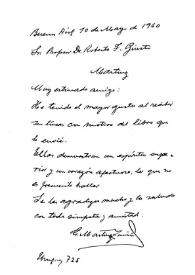 Buenos Aires 10 de Mayo de 1960
Sr. Profesor Dr. Roberto F. Giusti
Martínez
Muy estimado amigo:
He tenido el mayor gusto al recibir
su líneas con motivo del libro que
le envié.
Ellas demuestran un espíritu
y un corazón afectuoso, lo que no
es frecuente hallar.
Se la agradezco mucho y lo saludo
con toda simpatía y amistad.
Uruguay 725